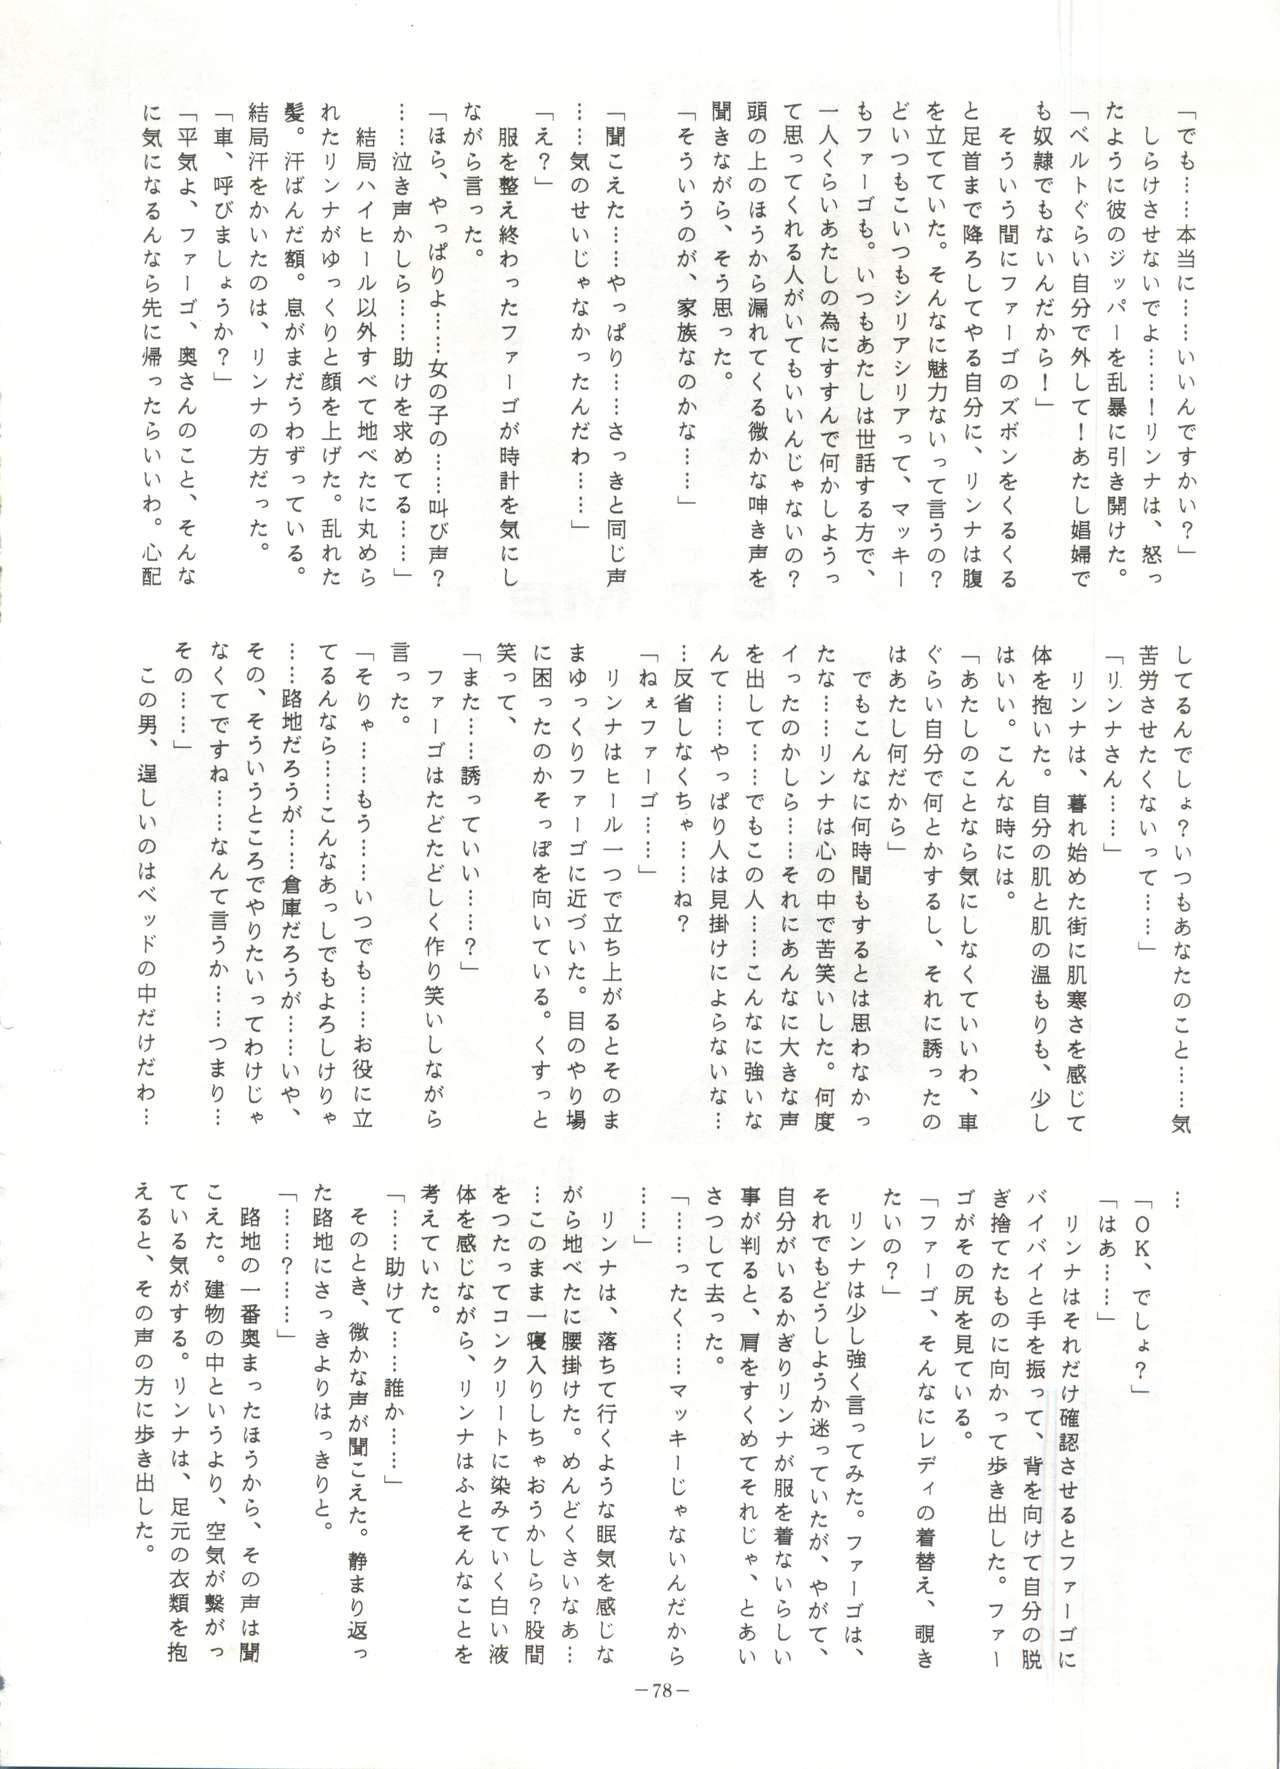 「でも……本当に……いいんですかい？」
しらけさせないでよ……！リンナは、怒っ
たように彼のジッパーを乱暴に引き開けた。
「ベルトぐらい自分で外して！あたし娼婦で
も奴隷でもないんだから！」
そういう間にファーゴのズボンをくるくる
と足首まで降ろしてやる自分に、リンナは腹
を立てていた。そんなに魅力ないって言うの？
どいつもこいつもシリアシリアって、マッキー
もファーゴも。いつもあたしは世話する方で、
一人くらいあたしの為にすすんで何かしようっ
て思ってくれる人がいてもいいんじゃないの？
頭の上のほうから漏れてくる微かな呻き声を
聞きながら、そう思った。
「そういうのが、家族なのかな……」
「聞こえた……やっぱり……さっきと同じ声
……気のせいじゃなかったんだわ……」
「え？」
服を整え終わったファーゴが時計を気にし
ながら言った。
「ほら、やっぱりよ……女の子の……叫び声？
……泣き声かしら……助けを求めてる……」
結局ハイヒール以外すべて地べたに丸めら
れたリンナがゆっくりと顔を上げた。乱れた
髪。汗ばんだ額。息がまだうわずっている。
結局汗をかいたのは、リンナの方だった。
「車、呼びましょうか？」
「平気よ、ファーゴ、奥さんのこと、そんな
に気になるんなら先に帰ったらいいわ。心配
してるんでしょ？いつもあなたのこと……気
苦労させたくないって……」
「リンナさん……」
リンナは、暮れ始めた街に肌寒さを感じて
体を抱いた。自分の肌と肌の温もりも、少し
はいい。こんな時には。
「あたしのことなら気にしなくていいわ、車
ぐらい自分で何とかするし、それに誘ったの
はあたし何だから」
でもこんなに何時間もするとは思わなかっ
たな……リンナは心の中で苦笑いした。何度
イったのかしら……それにあんなに大きな声
を出して……でもこの人……こんなに強いな
んて……やっぱり人は見掛けによらないな…
…反省しなくちゃ……ね？
「ねぇファーゴ……」
リンナはヒール一つで立ち上がるとそのま
まゆっくりファーゴに近づいた。目のやり場
に困ったのかそっぽを向いている。くすっと
笑って、
「また……誘っていい……？」
ファーゴはたどたどしく作り笑いしながら
言った。
「そりゃ……もう……いつでも……お役に立
てるんなら……こんなあっしでもよろしけりゃ
……路地だろうが……倉庫だろうが……いや、
その、そういうところでやりたいってわけじゃ
なくてですね……なんて言うか……つまり…
その……」
この男、逞しいのはベッドの中だけだわ…
…
「ＯＫ、でしょ？」
「はあ……」
リンナはそれだけ確認させるとファーゴに
バイバイと手を振って、背を向けて自分の脱
ぎ捨てたものに向かって歩き出した。ファー
ゴがその尻を見ている。
「ファーゴ、そんなにレディの着替え、覗き
たいの？」
リンナは少し強く言ってみた。ファーゴは、
それでもどうしようか迷っていたが、やがて、
自分がいるかぎりリンナが服を着ないらしい
事が判ると、肩をすくめてそれじゃ、とあい
さつして去った。
「……ったく……マッキーじゃないんだから
……」
リンナは、落ちて行くような眠気を感じな
がら地べたに腰掛けた。めんどくさいなあ…
…このまま一寝入りしちゃおうかしら？股間
をつたってコンクリートに染みていく白い液
体を感じながら、リンナはふとそんなことを
考えていた。
「……助けて……誰か……」
そのとき、微かな声が聞こえた。静まり返っ
た路地にさっきよりはっきりと。
「……？……」
路地の一番奥まったほうから、その声は聞
こえた。建物の中というより、空気が繋がっ
ている気がする。リンナは、足元の衣類を抱
えると、その声の方に歩き出した。
－78－